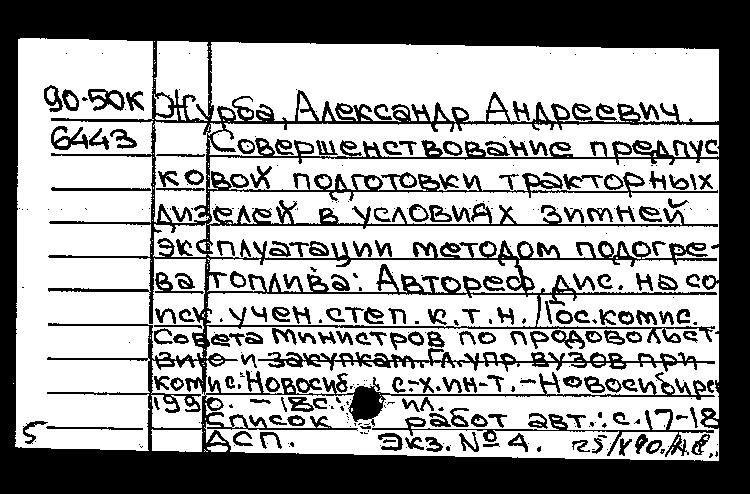 90-50К Журба, Александр Андреевич.
6443 Совершенствование предпус
ковой подготовки тракторных
дизелей в условиях зимней
эксплуатации методом подогре-
ва топлива: Автореф. дис. на со
иск. учен. степ. к.т.н. /Гос.комис.
Совета Министров по продовольст
вию и закупкам. Гл. упр. вузов при
комис. Новосиб. с.-х. ин-т. - Новосибирс
1990. - 18с.: ил.
Список работ авт.: с.17-18
5 ДСП. Экз. № 4.